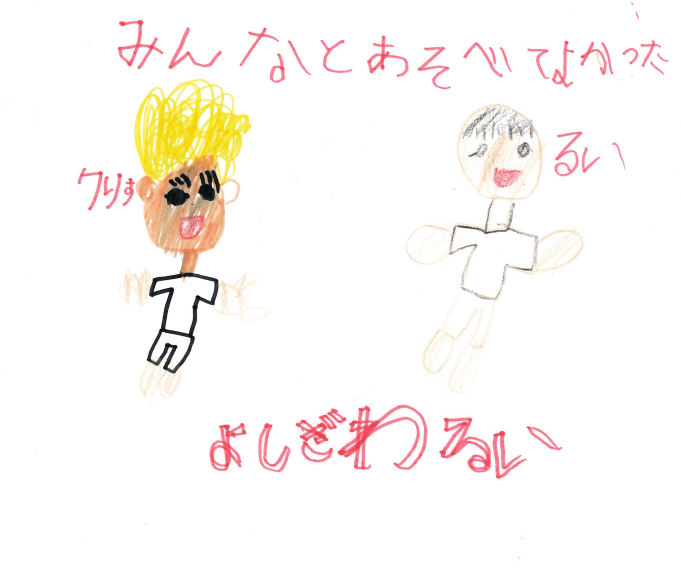 みんなとあそべてよかった
クりす
るい
よしぎわるい